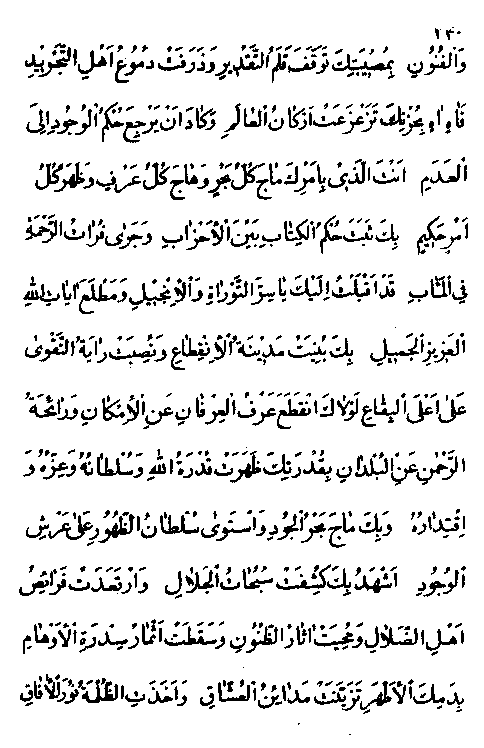 ٢٤٠
والفنون بمصيبتك توقف قلم التقدير وذرفت دموع اهل التجريد
فاه اه بحزنك تزعزعت اركان العالم وكاد ان يرجع حكم الوجود الى
العدم انت الذى بامرك ماج كل بحر وهاج كل عرف وظهر كل
امر حكيم بك ثبت حكم الكتاب بين الاحزاب وجرى فرات الرحمة
فى الماب قد اقبلت اليك يا سر التوراة والانجيل ومطلع ايات الله
العزيز الجميل بك بنيت مدينة الانقطاع ونصبت راية التقوى
على اعلى البقاع لولاك انقطع عرف العرفان عن الامكان ورائحة
الرحمن عن البلدان بقدرتك ظهرت قدرة الله وسلطانه وعزه و
اقتداره وبك ماج بحر الجود واستوى سلطان الظهور على عرش
الوجود اشهد بك كشفت سبحات الجلال وارتعدت فرائص
اهل الضلال ومحيت اثار الظنون وسقطت اثمار سدرة الاوهام
بدمك الاطهر تزينت مداين العشاق واخذت الظلمة نور الافاق